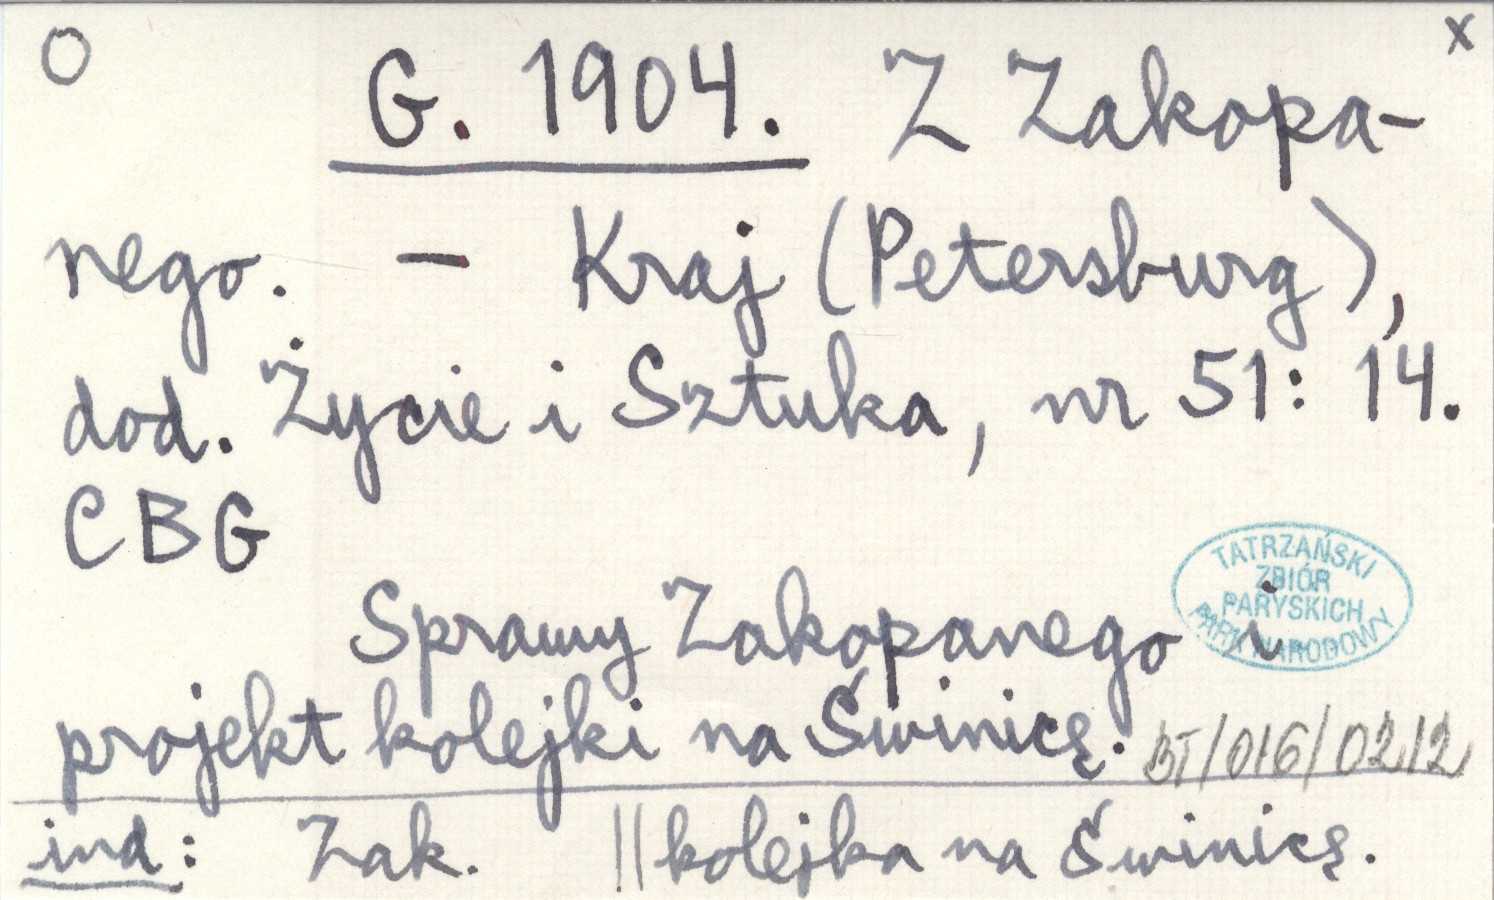 O G. 1904. Z Zakopa- x
nego. - Kraj (Petersburg),
dod. Życie i Sztuka, nr 51: 14.
CBG
TATRZAŃSKI
ZBIÓR
PARYSKICH
PARK NARODOWY
Sprawy Zakopanego i
projekt kolejki na Świnicę.
BT/016/0212
ind: Zak. || kolejka na Świnicę.